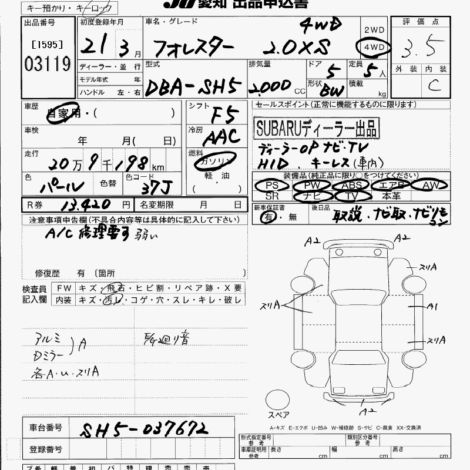 キー預かり・キーロック
愛知 出品申込書
[1595]
03119
初度登録年月
21年 3月
車名・グレード
フォレスター 4WD 2.0XS
2WD
4WD
評価点
3.5
ディーラー・並行
モデル年式 年
ハンドル 左・右
型式
DBA-SH5
排気量
2000 CC
ドア
5
形状
BW
定員
5 名
積載 kg
外装
内装
C
車歴
自家用・( )
シフト
F5
セールスポイント (正常に機能するものに限ります)
車検
年 月( 日)
冷房
AAC
SUBARUディーラー出品
ディーラーOP ナビ・TV
HID. キーレス(車内)
走行
20万9千198 km
燃料
ガソリン
軽油
( )
色
パール
色替
カラーNo.
37J
装備品(純正品に限り○をつけてください)
PS PW ABS エアB AW
SR ナビ TV 本革
R券
13,420円
名変期限 月 日
新車保証書
有・無
後日品
取説、ナビ取、ナビリモコン
注意事項申告欄(不具合内容等は具体的に記入して下さい)
A/C 修理要ス 弱い
修復歴 有(箇所 )
検査員
記入欄
FW キズ・飛石・ヒビ割・リペア跡・X要
内装 キズ・汚レ・コゲ・穴・スレ・キレ・破レ
アルミ
Dミラー A
各A・U・スリA
A2
スリA
スリA
A1
スリA
A2
スペア
A-キズ E-エクボ U-凹み W-補修跡 S-サビ C-腐食 XX-交換済
車台番号
SH5-037672
登録番号
型式指定番号
類別区分番号